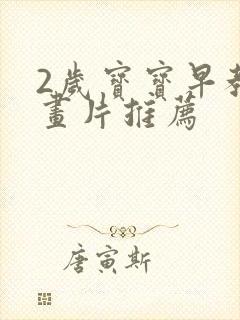 2歲寶寶早教
畫片推薦
唐寅斯